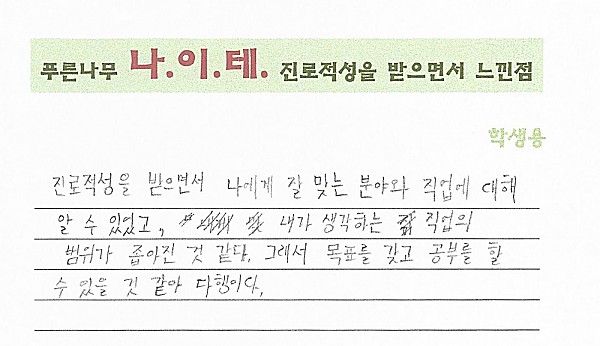 푸른나무 나.이.테. 진로적성을 받으면서 느낀점
학생용
진로적성을 받으면서 나에게 잘 맞는 분야와 직업에 대해
알 수 있었고, 내가 생각하는 직업의
범위가 좁아진 것 같다. 그래서 목표를 갖고 공부를 할
수 있을 것 같아 다행이다.